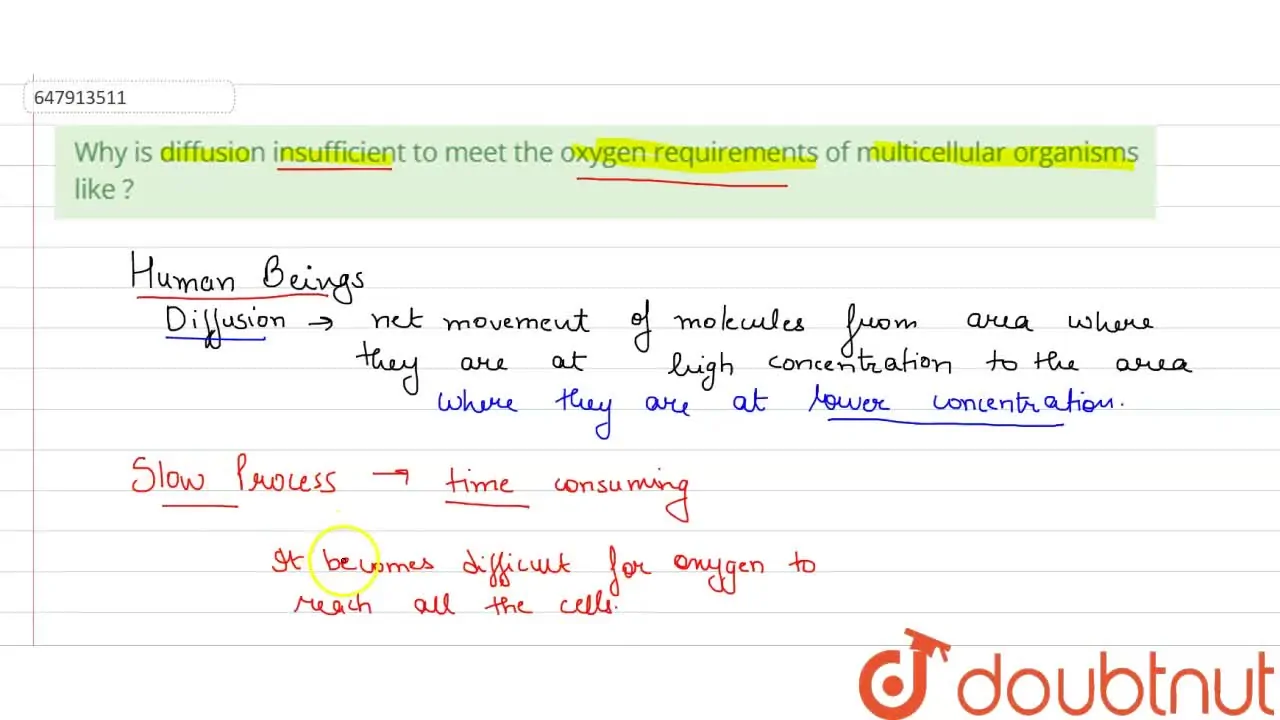 647913511
Why is diffusion insufficient to meet the oxygen requirements of multicellular organisms
like ?
Human Beings
Diffusion → net movement of molecules from area where
they are at high concentration to the area
where they are at lower concentration.
Slow Process → time consuming
It becomes difficult for oxygen to
reach all the cells.
doubtnut